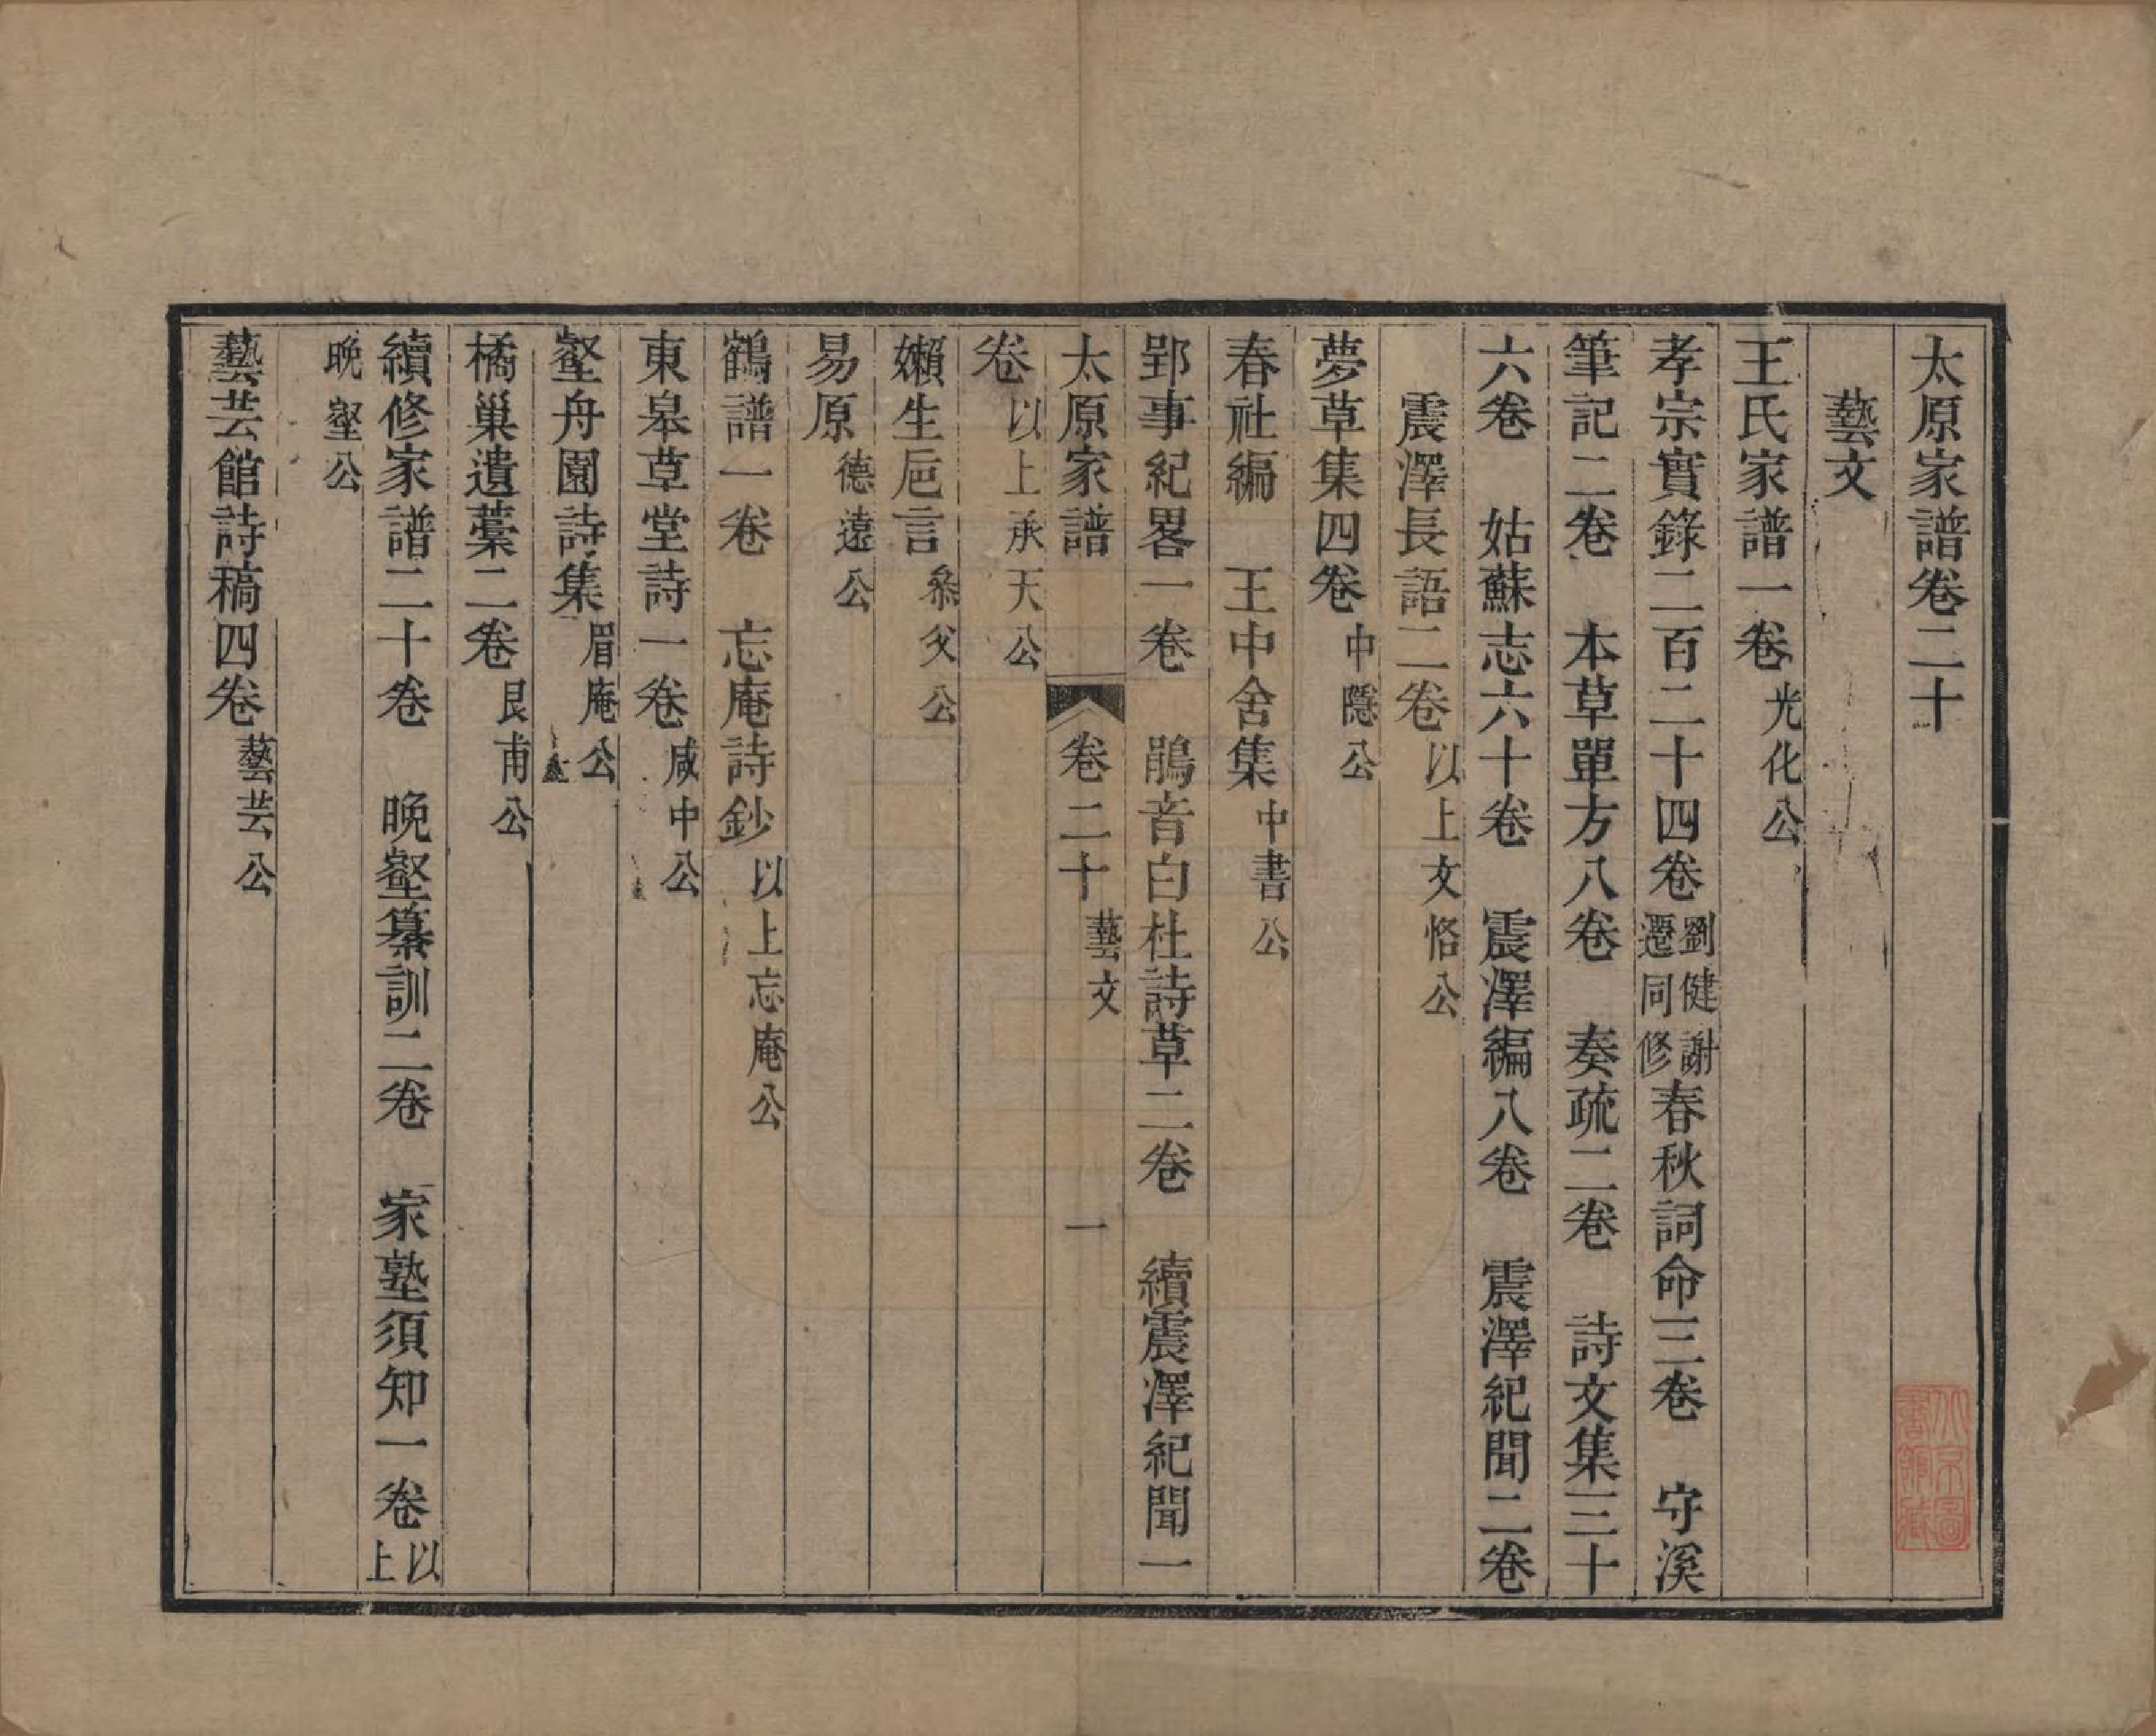 太原家譜卷二十
藝文
王氏家譜一卷光化公
孝宗實錄二百二十四卷劉健謝遷同修春秋詞命三卷　守溪
筆記二卷　本草單方八卷　奏疏二卷　詩文集三十
六卷　姑蘇志六十卷　震澤編八卷　震澤紀聞二卷
震澤長語二卷以上文恪公
夢草集四卷中隱公
春社編　王中舍集中書公
郢事紀畧一卷　鵑音白杜詩草二卷　續震澤紀聞一
太原家譜　卷二十藝文　一
卷以上永天公
嬾生巵言叅父公
易原德遠公
鶴譜一卷　忘庵詩鈔以上忘庵公
東皋草堂詩一卷咸中公
壑舟園詩集眉庵公
橘巢遺藁二卷艮甫公
續修家譜二十卷　晚壑纂訓二卷　家塾須知一卷以上
晚壑公
藝芸館詩稿四卷藝芸公